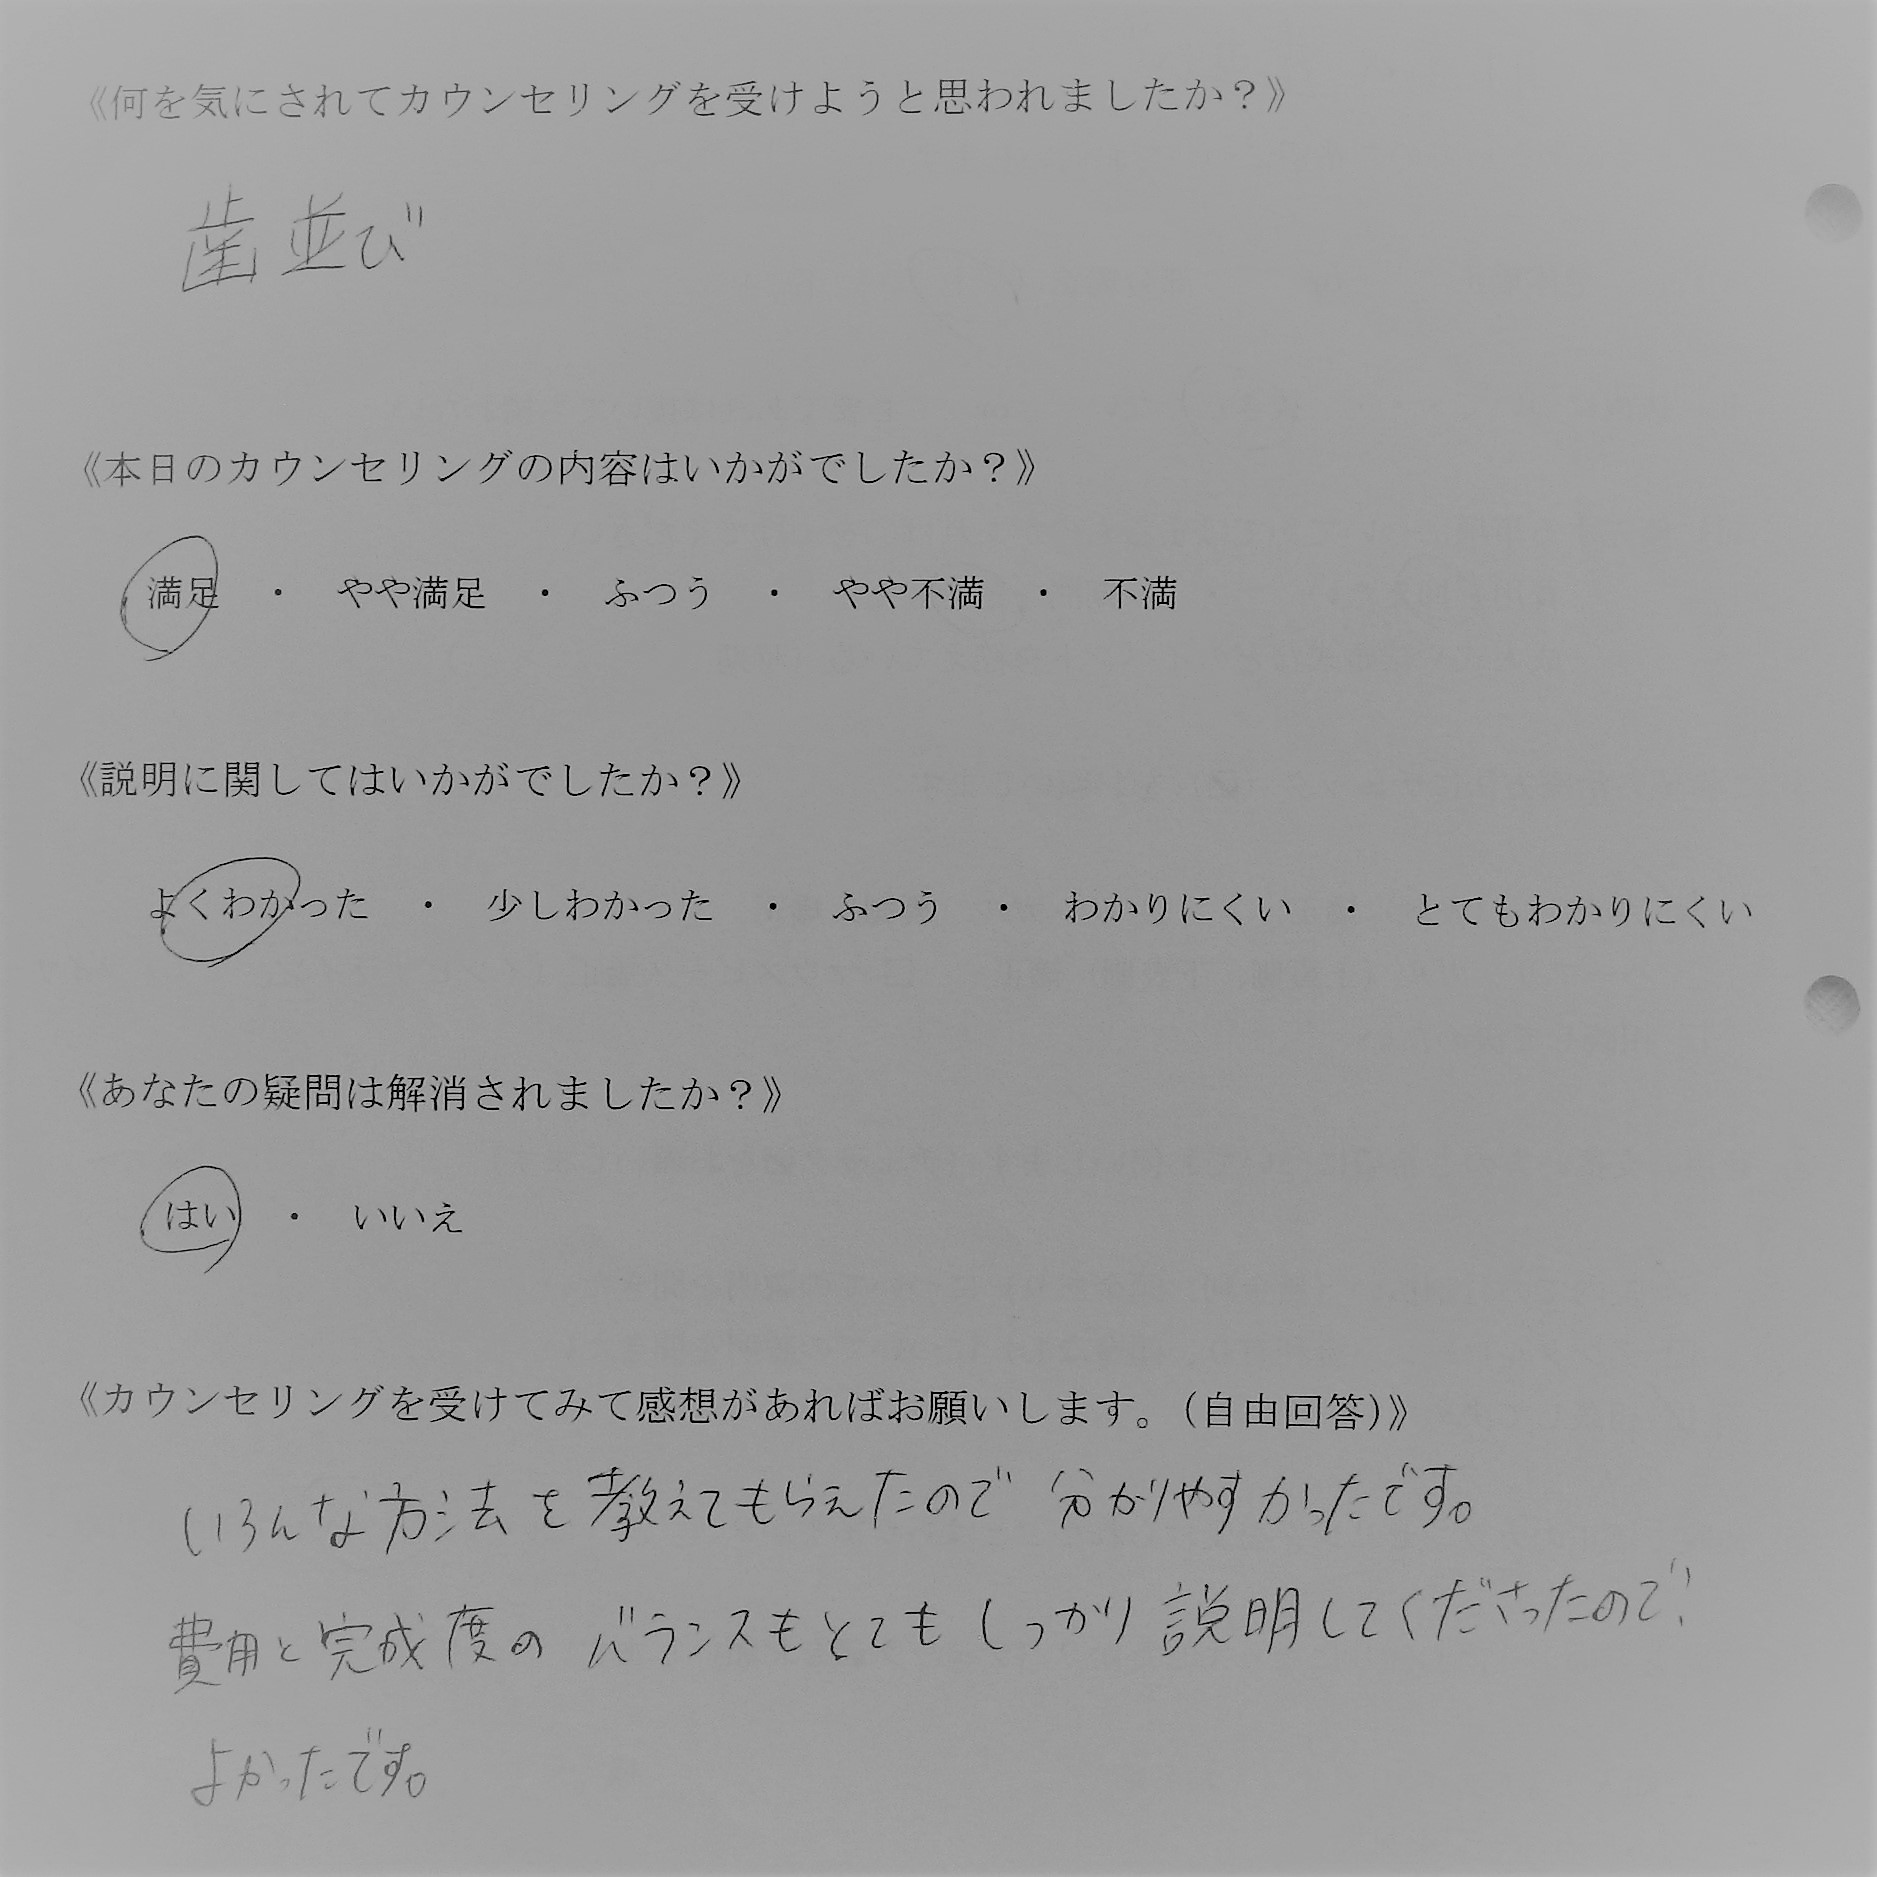 《何を気にされてカウンセリングを受けようと思われましたか？》
歯並び
《本日のカウンセリングの内容はいかがでしたか？》
満足　・　やや満足　・　ふつう　・　やや不満　・　不満
《説明に関してはいかがでしたか？》
よくわかった　・　少しわかった　・　ふつう　・　わかりにくい　・　とてもわかりにくい
《あなたの疑問は解消されましたか？》
はい　・　いいえ
《カウンセリングを受けてみて感想があればお願いします。（自由回答）》
いろんな方法を教えてもらえたので分かりやすかったです。
費用と完成度のバランスもとてもしっかり説明してくださったので
よかったです。